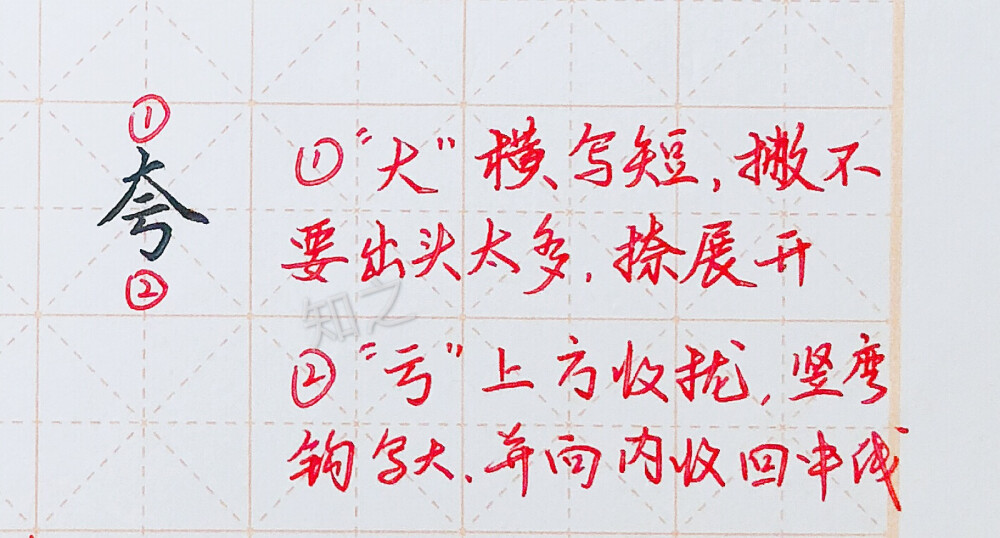 ①
夸
②
①“大”横写短,撇不
要出头太多,捺展开
知之
②“亏”上方收拢,竖弯
钩写大,并向内收回中线